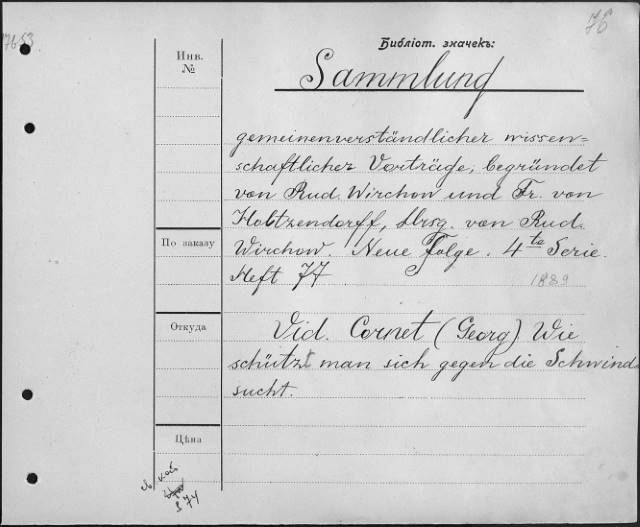 17653
76
Библіот. значекъ:
Инв.
№
Sammlung
gemeinenverständlicher wissen=
schaftlicher Vorträge, begründet
von Rud. Wirchow und Fr. von
Holtzendorff, Hrsg. von Rud.
Wirchow. Neue Folge. 4te Serie.
Heft 77
1889
По заказу
Vid. Cornet (Georg) Wie
schützt man sich gegen die Schwind
sucht.
Откуда
Цѣна